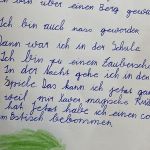 bin über einen Berg gewa
Ich bin auch nass geworden
Dann war ich in der Schule
Ich bin zu einem Zauberschl
In der Nacht gehe ich in den
Spiele Das kann ich jetzt ganz
weil mir lauer magische
hat jetzt habe ich einen co
bekommen